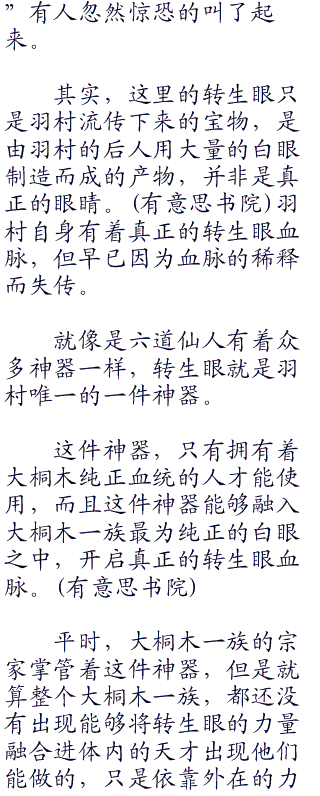 ”有人忽然惊恐的叫了起
来。
其实，这里的转生眼只
是羽村流传下来的宝物，是
由羽村的后人用大量的白眼
制造而成的产物，并非是真
正的眼睛。(有意思书院)羽
村自身有着真正的转生眼血
脉，但早已因为血脉的稀释
而失传。
就像是六道仙人有着众
多神器一样，转生眼就是羽
村唯一的一件神器。
这件神器，只有拥有着
大桐木纯正血统的人才能使
用，而且这件神器能够融入
大桐木一族最为纯正的白眼
之中，开启真正的转生眼血
脉。(有意思书院)
平时，大桐木一族的宗
家掌管着这件神器，但是就
算整个大桐木一族，都还没
有出现能够将转生眼的力量
融合进体内的天才出现他们
能做的，只是依靠外在的力